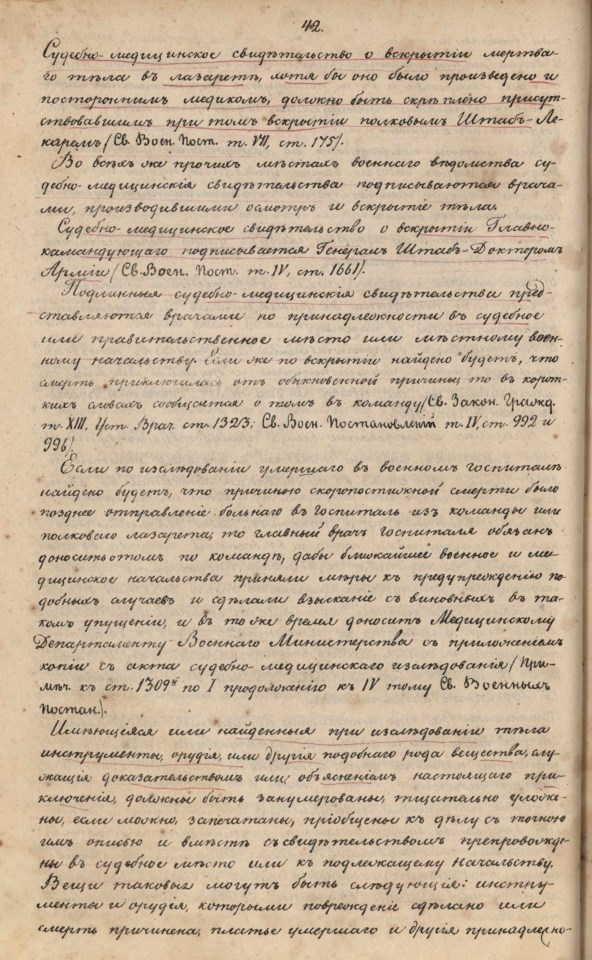 42.
Судебно-медицинское свидѣтельство о вскрытіи мертва-
го тѣла въ лазаретѣ, хотя бы оно было произведено и
постороннимъ медикомъ, должно быть скрѣплено присут-
ствовавшимъ при томъ вскрытіи полковымъ Штабъ-Ле-
каремъ (Св. Воен. Пост. т. VII, ст. 175).
Во всѣхъ же прочихъ мѣстахъ военнаго вѣдомства су-
дебно-медицинскія свидѣтельства подписываются врача-
ми, производившими осмотръ и вскрытіе тѣла.
Судебно-медицинское свидѣтельство о вскрытіи Главно-
командующаго подписывается Генералъ Штабъ-Докторомъ
Арміи (Св. Воен. Пост. т. IV, ст. 1661).
Подлинныя судебно-медицинскія свидѣтельства пред-
ставляются врачами по принадлежности въ судебное
или правительственное мѣсто или мѣстному воен-
ному начальству. Если же по вскрытіи найдено будетъ, что
смерть приключилась отъ обыкновенной причины, то въ корот-
кихъ словахъ сообщается о томъ въ команду (Св. Закон. Гражд.
т. XIII, Уст. Врач. ст. 1323; Св. Воен. Постановленій т. IV, ст. 992 и
996).
Если по изслѣдованіи умершаго въ военномъ госпиталѣ
найдено будетъ, что причиною скоропостижной смерти было
позднее отправленіе больнаго въ госпиталь изъ команды или
полковаго лазарета, то главный врачъ госпиталя обязанъ
доносить о томъ по командѣ, дабы ближайшее военное и ме-
дицинское начальства приняли мѣры къ предупрежденію по-
добныхъ случаевъ и сдѣлали взысканіе съ виновныхъ въ та-
комъ упущеніи, и въ то же время доноситъ Медицинскому
Департаменту Военнаго Министерства съ приложеніемъ
копіи съ акта судебно-медицинскаго изслѣдованія (При-
мѣч. къ ст. 1309й по I продолженію къ IV тому Св. Военныхъ
Постан.).
Имѣющіяся или найденныя при изслѣдованіи тѣла
инструменты, орудія, или другія подобнаго рода вещества, слу-
жащія доказательствомъ или объясненіемъ настоящаго при-
ключенія, должны быть занумерованы, тщательно уложе-
ны, если можно, запечатаны, пріобщены къ дѣлу съ точною
имъ описью и вмѣстѣ съ свидѣтельствомъ препровожде-
ны въ судебное мѣсто или къ подлежащему начальству.
Вещи таковыя могутъ быть слѣдующія: инстру-
менты и орудія, которыми поврежденіе сдѣлано или
смерть причинена, платье умершаго и другія принадлежно-